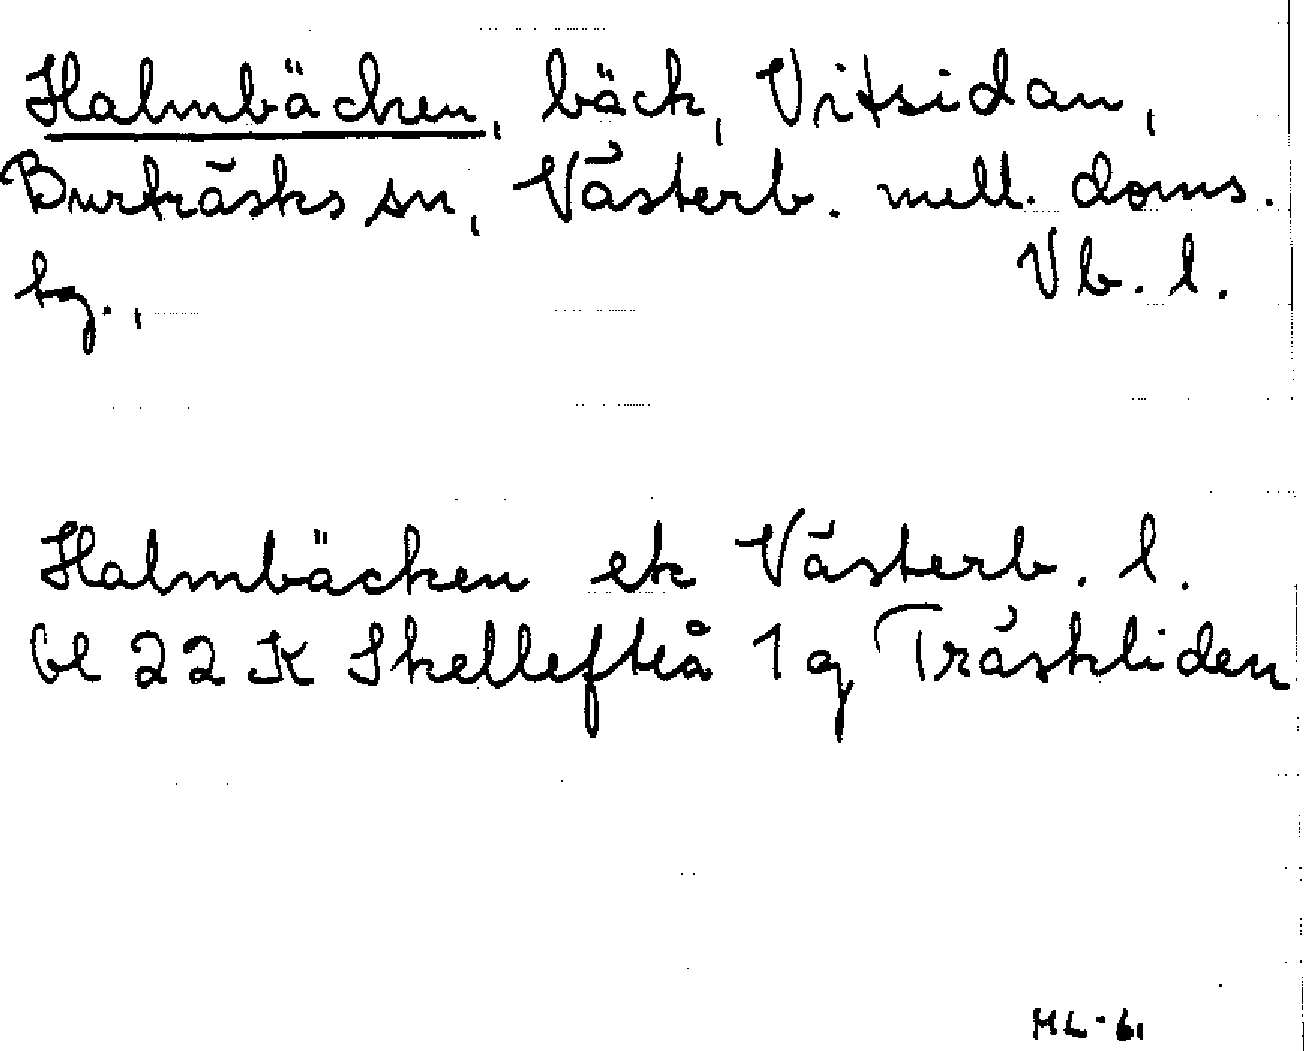 Halmbäcken, bäck, Vitsidan,
Burträsks sn, Västerb. mell. doms.
bg., Vb. l.
Halmbäcken ek Västerb. l.
bl 22 K Skellefteå 1 g Träskliden
HL-61